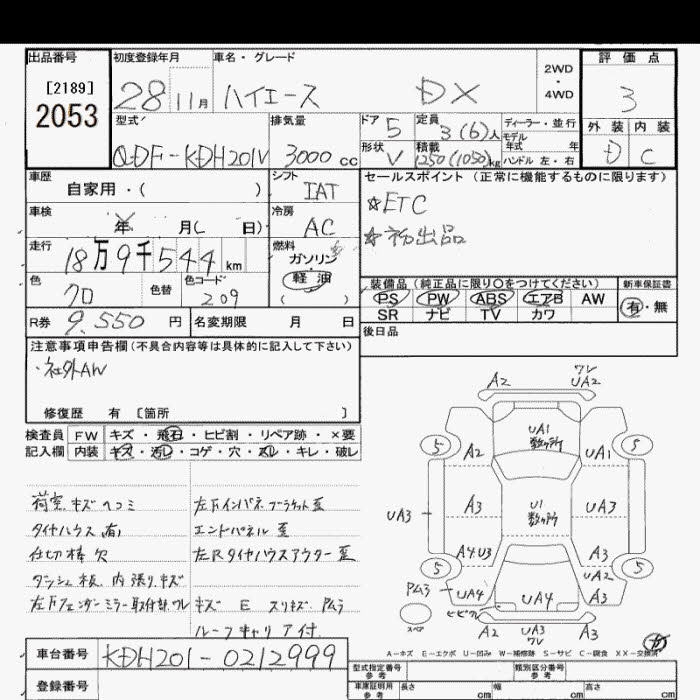 出品番号 初度登録年月 車名・グレード 2WD・4WD 評価点
[2189] 2053 28 11月 ハイエース DX 3
型式 排気量 ドア 5 定員 3(6)人 ディーラー・並行 外装 内装
QDF-KDH201V 3000cc 形状 V 積載 1250(1050)kg モデル年式 年 ハンドル 左・右 D C
車歴 シフト セールスポイント(正常に機能するものに限ります)
自家用・( ) IAT ☆ETC
車検 年 月( 日) 冷房 AC ☆初出品
走行 18万9千544km 燃料 ガソリン・軽油 ( )
色 クロ 色替 色コード 209 装備品(純正品に限り○をつけてください) 新車保証書
PS PW ABS エアB AW 有・無
R券 9,550円 名変期限 月 日 SR ナビ TV カワ
後日品
注意事項申告欄(不具合内容等は具体的に記入して下さい)
・社外AW
修復歴 有 [箇所 ]
検査員 FW キズ・飛石・ヒビ割・リペア跡・×要
記入欄 内装 キズ・汚レ・コゲ・穴・スレ・キレ・破レ
荷室 キズ ヘコミ 左Fインパネ ブラケット歪
タイヤハウス 有) エンドパネル 歪
仕切棒 欠 左Rタイヤハウスアウター 歪
ダッシュ板、内張リ キズ
左Fフェンダーミラー取付部 ワレ キズ E スリキズ、PAムラ
ルーフキャリア付
A2 ワレ UA2
5 A2 UA1 数ヶ所 UA1 5
UA3 A3 U1 数ヶ所 UA3
A4U3 A3
5 UA2 5
PAムラ UA4 UA4 A3
スペア ヒビワレ A2 UA3 ワレ A3
A-キズ E-エクボ U-凹み W-補修跡 S-サビ C-腐食 XX-交換済
車台番号 KDH201-0212999
登録番号
型式指定番号 参考 類別区分番号 参考
車庫証明用 参考 長さ cm 幅 cm 高さ cm